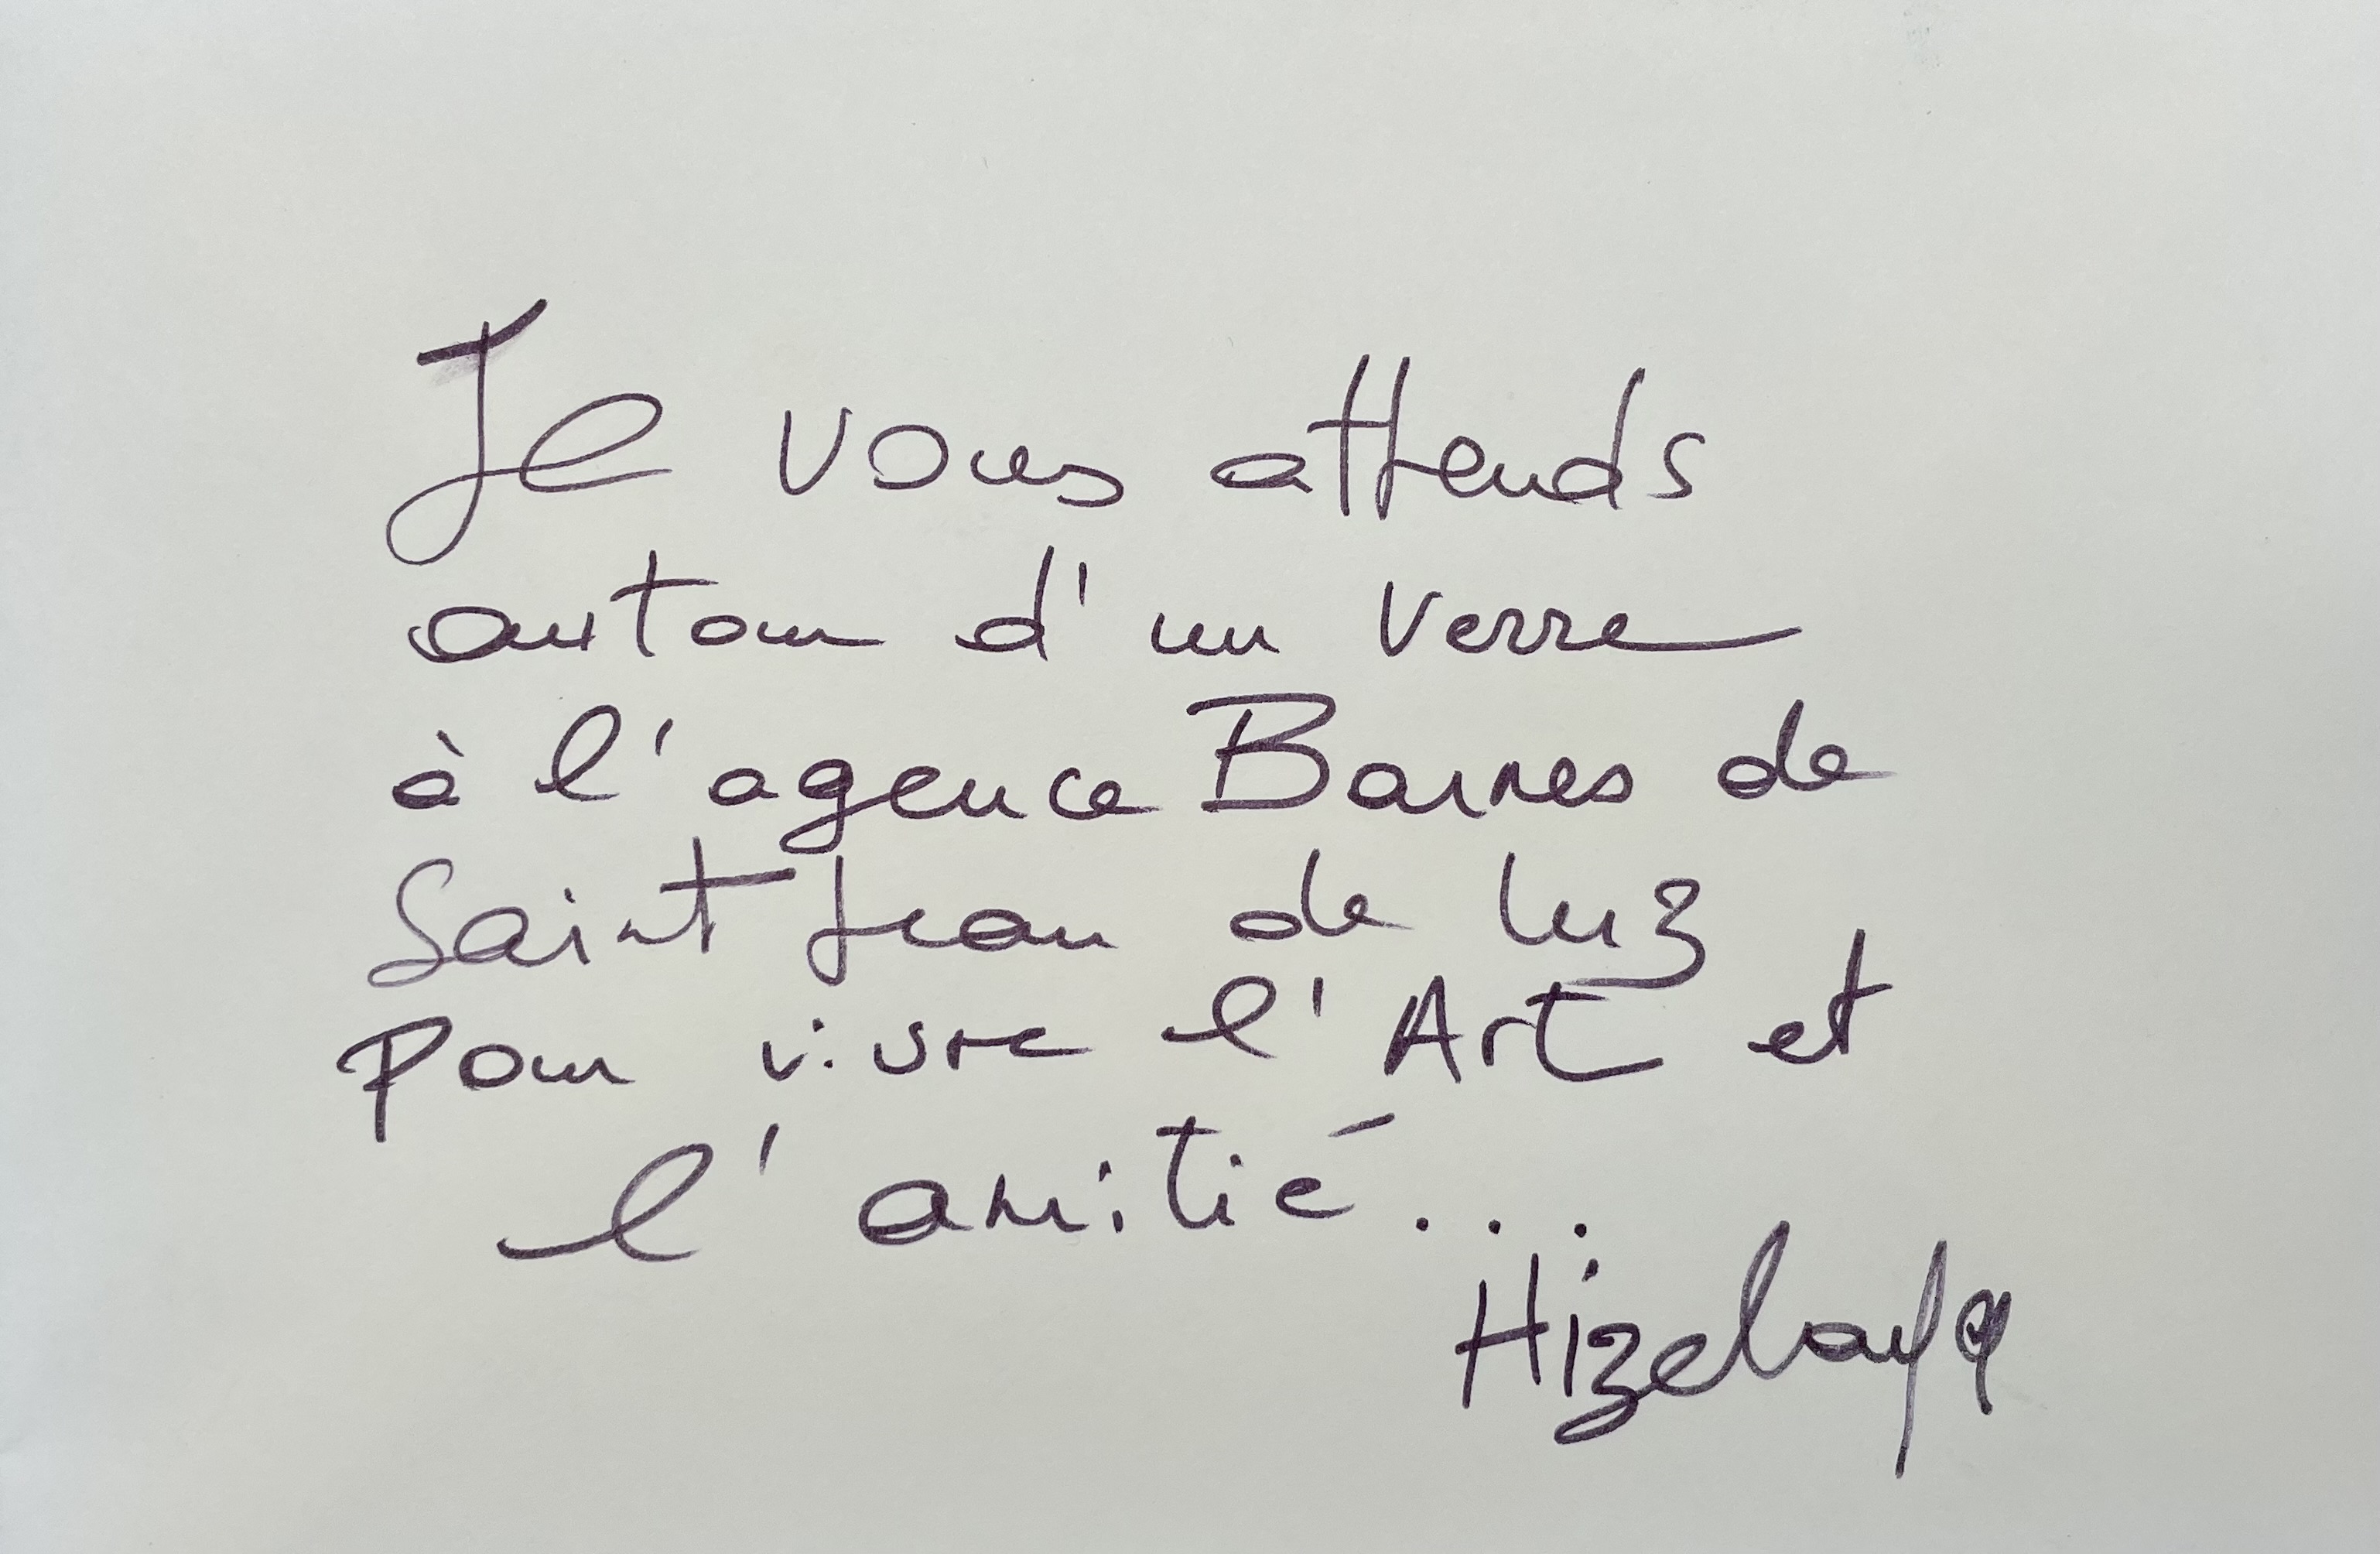 Je vous attends
autour d'un verre
à l'agence Barnes de
Saint Jean de luz
Pour vivre l'Art et
l'amitié...